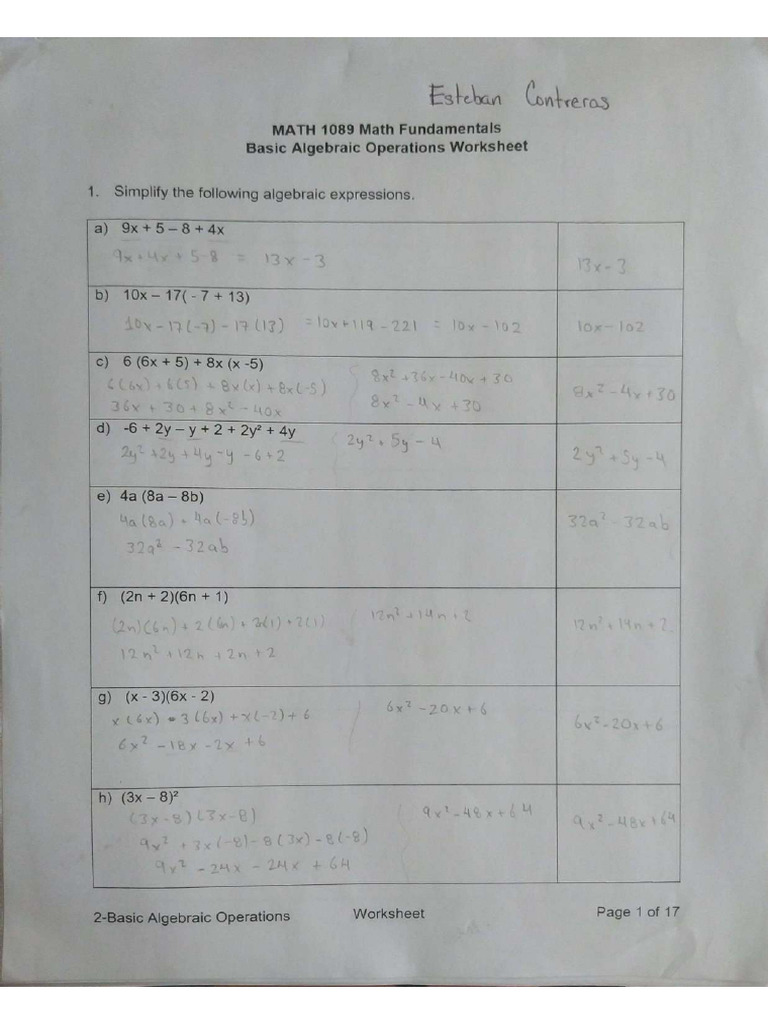 Esteban Contreras
MATH 1089 Math Fundamentals
Basic Algebraic Operations Worksheet
1. Simplify the following algebraic expressions.
a) 9x + 5 – 8 + 4x
9x+4x+5-8 = 13x-3
13x-3
b) 10x – 17( - 7 + 13)
10x-17(-7)-17(13) =10x+119-221 = 10x-102
10x-102
c) 6 (6x + 5) + 8x (x -5)
6(6x)+6(5)+8x(x)+8x(-5)
36x+30+8x²-40x
8x²+36x-40x+30
8x²-4x+30
8x²-4x+30
d) -6 + 2y – y + 2 + 2y² + 4y
2y²+2y+4y-y-6+2
2y²+5y-4
2y²+5y-4
e) 4a (8a – 8b)
4a(8a)+4a(-8b)
32a²-32ab
32a²-32ab
f) (2n + 2)(6n + 1)
(2n)(6n)+2(6n)+ (1)+2(1)
12n²+12n+2n+2
12n²+14n+2
12n²+14n+2
g) (x - 3)(6x - 2)
x(6x)-3(6x)+x(-2)+6
6x²-18x-2x+6
6x²-20x+6
6x²-20x+6
h) (3x – 8)²
(3x-8)(3x-8)
9x²+3x(-8)-8(3x)-8(-8)
9x²-24x-24x+64
9x²-48x+64
9x²-48x+64
2-Basic Algebraic Operations Worksheet Page 1 of 17